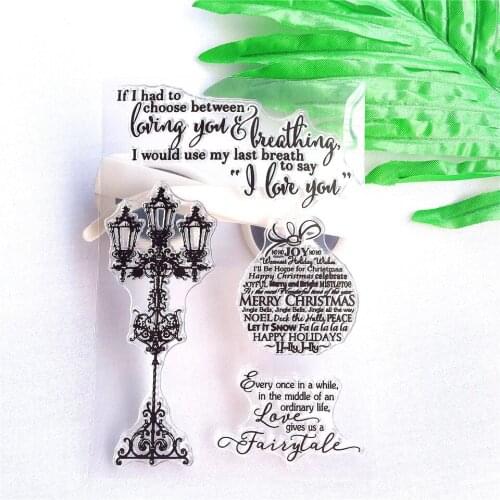 If I had to
choose between
loving you & breathing,
I would use my last breath
to say
"I love you"
HO HO JOY HO HO
Warmest Holiday Wishes
I'll Be Home for Christmas
Happy Christmas celebrate
JOYFUL Merry and Bright MISTLETOE
It's the most Wonderful time of the year
MERRY CHRISTMAS
Jingle Bells, Jingle Bells, Jingle all the way
NOEL Deck the Halls PEACE
LET IT SNOW Fa la la la la
HAPPY HOLIDAYS
Holly Jolly
Every once in a while,
in the middle of an
ordinary life,
Love
gives us a
Fairytale